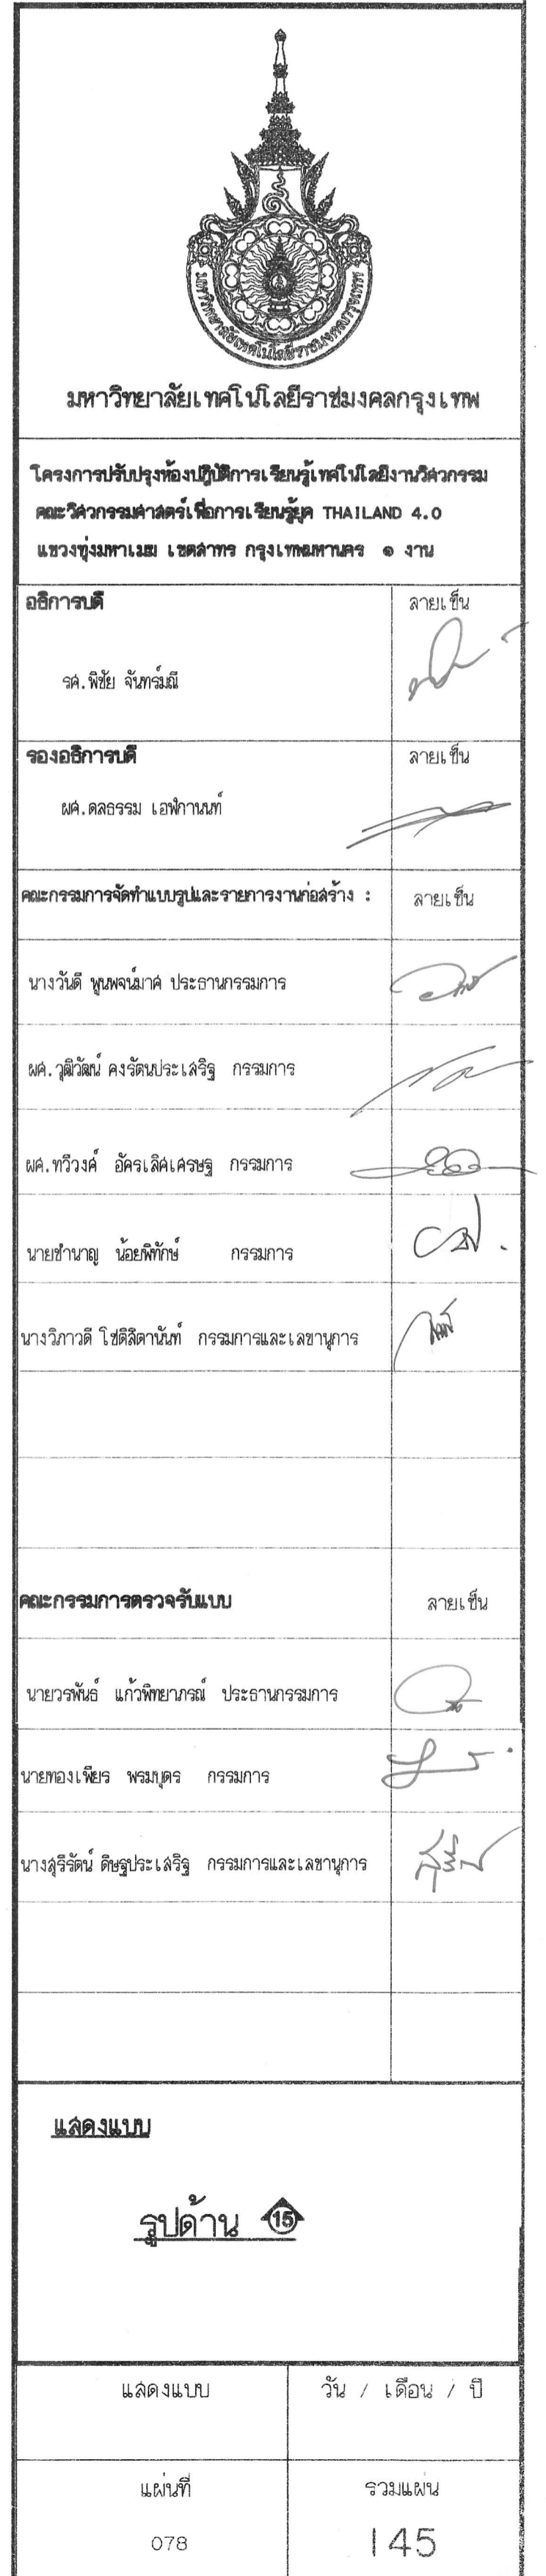 มหาวิทยาลัยเทคโนโลยีราชมงคลกรุงเทพ
มหาวิทยาลัยเทคโนโลยีราชมงคลกรุงเทพ
โครงการปรับปรุงห้องปฎิบัติการเรียนรู้เทคโนโลยีงานวิศวกรรม
คณะวิศวกรรมศาสตร์เพื่อการเรียนรู้ยุค THAILAND 4.0
แขวงทุ่งมหาเมฆ เขตสาทร กรุงเทพมหานคร ๑ งาน
อธิการบดี ลายเซ็น
รศ.พิชัย จันทร์มณี
รองอธิการบดี ลายเซ็น
ผศ.ดลธรรม เอฬกานนท์
คณะกรรมการจัดทำแบบรูปและรายการงานก่อสร้าง : ลายเซ็น
นางวันดี พูนพจน์มาศ ประธานกรรมการ
ผศ.วุฒิวัฒน์ คงรัตนประเสริฐ กรรมการ
ผศ.ทวีวงศ์ อัครเลิศเศรษฐ กรรมการ
นายชำนาญ น้อยพิทักษ์ กรรมการ
นางวิภาวดี โชติลิตานันท์ กรรมการและเลขานุการ
คณะกรรมการตรวจรับแบบ ลายเซ็น
นายวรพันธ์ แก้วพิทยาภรณ์ ประธานกรรมการ
นายทองเพียร พรมบุตร กรรมการ
นางสุรีรัตน์ ดิษฐประเสริฐ กรรมการและเลขานุการ
แสดงแบบ
รูปด้าน 15
แสดงแบบ วัน / เดือน / ปี
แผ่นที่ รวมแผ่น
078 145